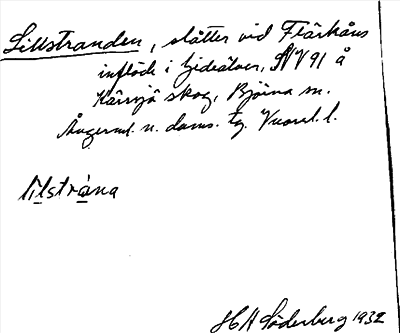 Lillstranden, slåtter vid Flärkåns
inflöde i Gideälven, NV 91 å
Kärrsjö skog, Björna sn.
Ångerml. n. doms. tg. l.
lilstràna
H A Söderberg 1932